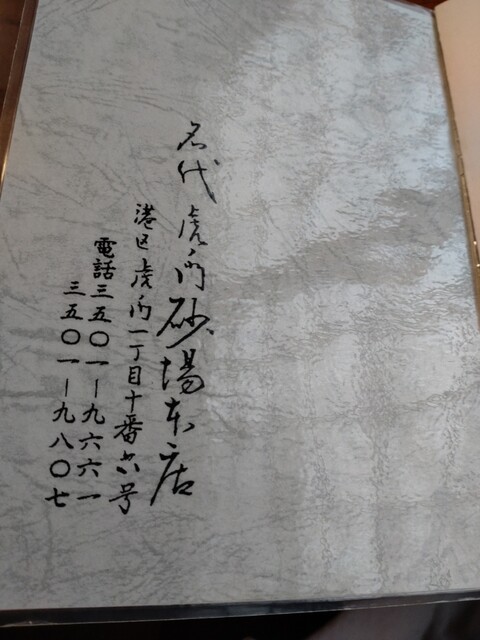 名代虎ノ門砂場本店
港区虎ノ門一丁目十番六号
電話三五〇一ー九六六一
三五〇一ー九八〇七